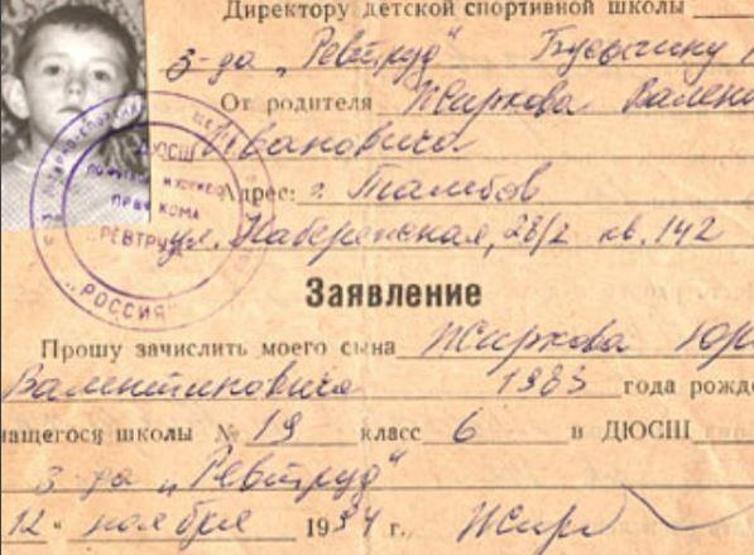 Директору детской спортивной школы
з-да „Ревтруд“ Бусычину
От родителя Жиркова Вален
Ивановича
Адрес: г. Тамбов
ул. Набережная, 28/2 кв. 142
ДЮСШ
ПО ФУТБОЛУ И ХОККЕЮ
ПРОФКОМА
"РЕВТРУД"
"РОССИЯ"
Заявление
Прошу зачислить моего сына Жиркова Юр
Валентиновича 1983 года рожде
чащегося школы № 19 класс 6 в ДЮСШ
з-да „Ревтруд“
12 " ноября 1994 г. Жир